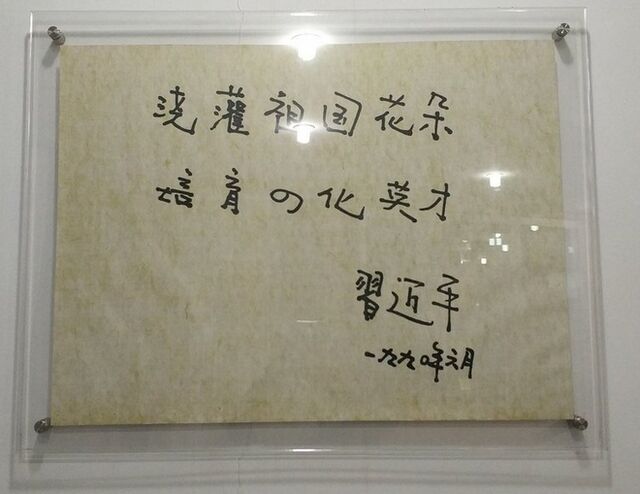 浇灌祖国花朵
培育の化英才
習近平
一九九〇年六月